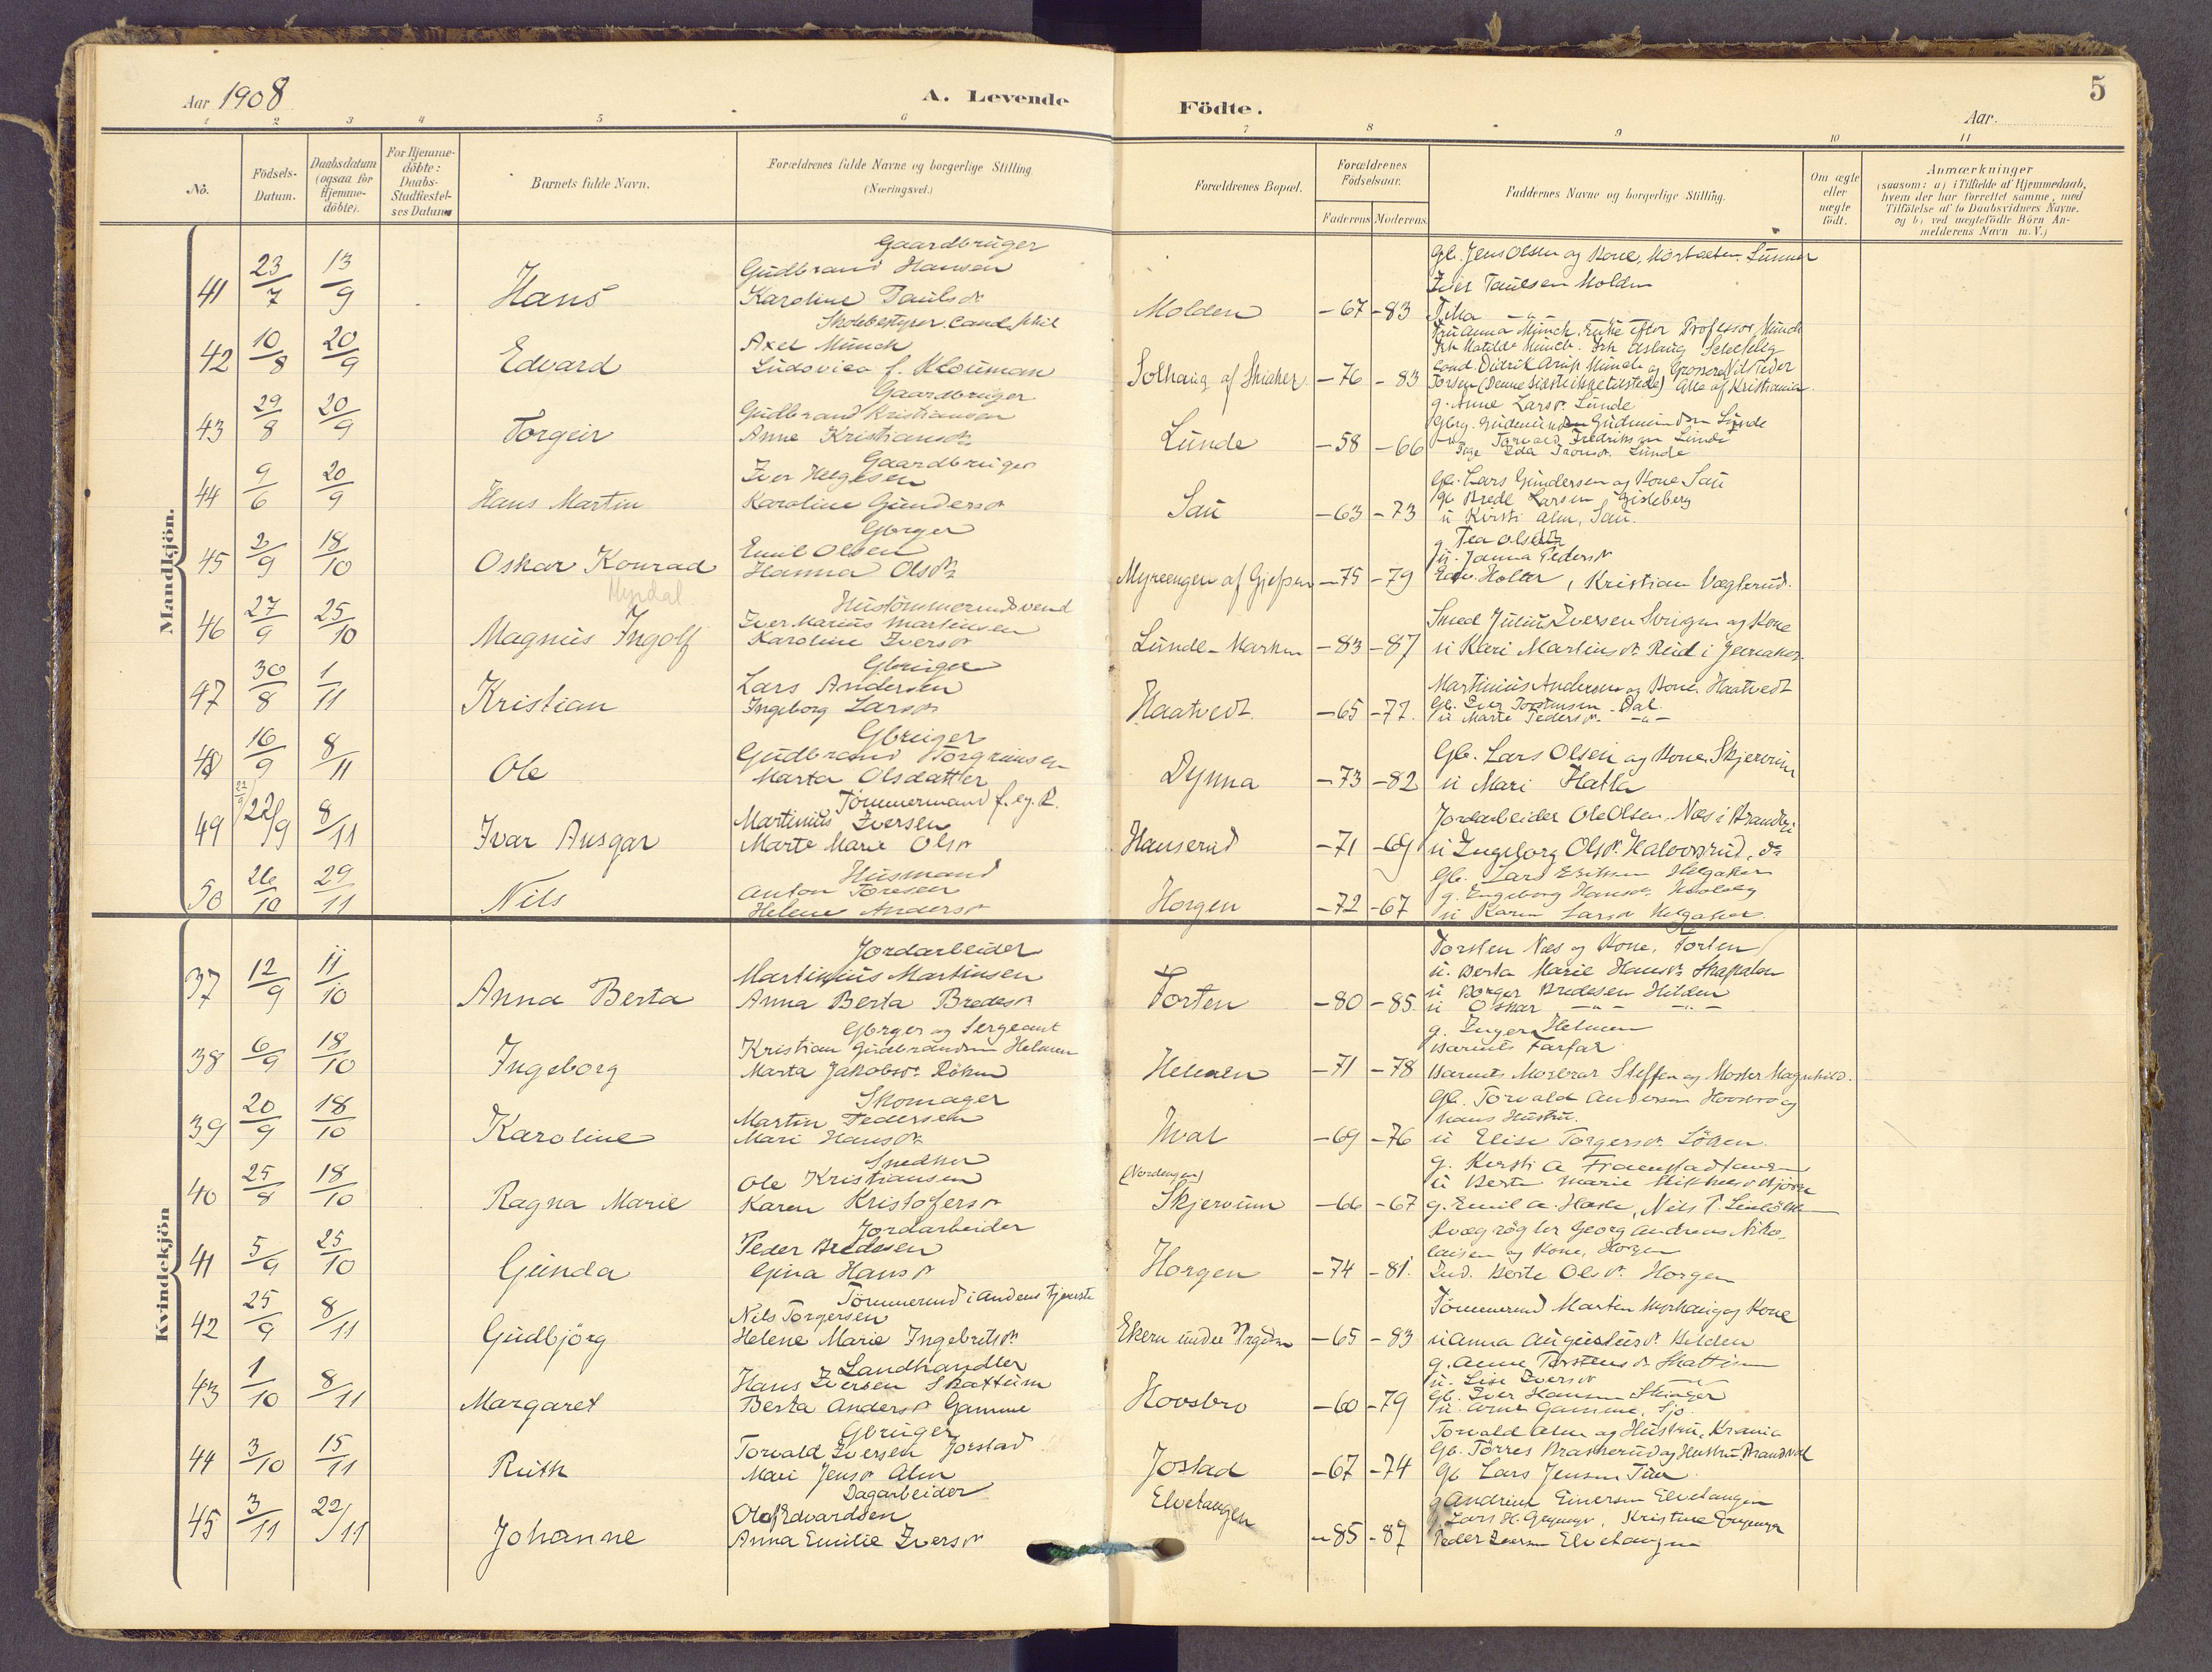 Aar 1908
A. Levende
Födte.
Aar.
5
1 2 3 4 5 6 7 8 9 10 11
No.
Födsels-
Datum.
Daabsdatum
(ogsaa for
Hjemme-
döbte).
For Hjemme-
döbte:
Daabs-
Stadfæstel-
ses Datum
Barnets fulde Navn.
Forældrenes fulde Navne og borgerlige Stilling
(Næringsvei.)
Forældrenes Bopæl.
Forældrenes
Födselsaar.
Faderens Moderens
Faddernes Navne og borgerlige Stilling.
Om ægte
eller
uægte
födt.
Anmærkninger
(saasom: a) i Tilfælde af Hjemmedaab,
hvem der har forrettet samme, med
Tilföielse af to Daabsvidners Navne.
og b) ved uægtefödte Börn An-
melderens Navn m.V.)
Mandkjön.
41 23/7 13/9 Hans
Gaardbruger
Gudbrand Hansen
Karoline Paulsdr
Molden -67 -83
Gb. Jens Olsen og Kone, Lunner
Iver Paulsen Molden
42 10/8 20/9 Edvard
Skolebestyrer Cand. phil
Axel Münch
Ludovica f. Klouman
Solhaug af Skiaker -76 -83
Fru Anna Münch. Enke efter Professor Münch
Frk Matilde Münch. Frk Aslaug
Cand. Didrik Arup Münch og Grosserer Nils Peder
(Denne sidste ikke tilstede) Alle af Kristiania
43 29/8 20/9 Torgeir
Gaardbruger
Gudbrand Kristiansen
Anne Kristiansdr
Lunde -58 -66
g. Anne Larsdr. Lunde
Gudmundsen Lunde
Torvald Fredriksen Lunde
Pige Ida Lunde
44 9/6 20/9 Hans Martin
Gaardbruger
Iver Helgesen
Karoline Gundersdr
Sau -63 -73
Gb. Lars Gundersen og Kone Sau
gb Brede Larsen Gisleberg
u Kirsti Alm, Sau.
45 2/9 18/10 Oskar Konrad
Gbrger
Emil Olsen
Hanna Olsdtr
Myreengen af Gjefsen -75 -79
g Tea Olsdtr
u. Janna Pedersdr
Holter, Kristian Væglerud.
Myrdal
46 27/9 25/10 Magnus Ingolf
Hustömmermdsvend
Iver Marius Martinsen
Karoline Iversdr
Lunde-Marken -83 -87
Smed Julius Iversen og Kone
u Kari Martinsdr Rud i Jevnaker
47 30/8 1/11 Kristian
Gbruger
Lars Andersen
Ingeborg Larsdr
Haatvedt -65 -77.
Martinius Andersen og Kone. Haatvedt
Gb. Iver Torstensen Dal
u Marte Pedersdr. -"-
48 16/9 8/11 Ole
Gbruger
Gudbrand Torgrimsen
Marta Olsdatter
Dynna -73 -82
Gb. Lars Olsen og Kone. Skjervum
u Mari Hatla
49 22/9 8/11 Ivar Ansgar
Tömmermand f. eg. R.
Martinius Iversen
Marte Marie Olsdr
Hanserud -71 -69
Jordarbeider Ole Olsen. Næs i Brandbu
u Ingeborg Olsdr. Halvorsrud. do
50 26/10 29/11 Nils
Husmand
Anton Toresen
Helene Andersdr
Horgen -72 -67
Gb. Lars Eriksen Helgaker
g. Engeborg Hansdr.
u Karen Larsdr Helgaker.
Kvindekjön
37 12/9 11/10 Anna Berta
Jordarbeider
Martinius Martinsen
Anna Berta Bredesdr
Torten -80 -85
Torsten Næs og Kone. Torten
u. Berta Marie Hansdr.
u Borger Bredesen Hilden
u Oskar -"- -"-
38 6/9 18/10 Ingeborg
Gbrger og Sergeant
Kristian Gudbrandsen Helmen
Marta Jakobsdr. Röken
Helmen -71 -78
g. Inger Helmen
Barnets Farfar
Barnets Morbror Steffen og Moster Magnhild.
39 20/9 18/10 Karoline
Skomager
Martin Pedersen
Mari Hansdr.
Hval -69 -76
Gb. Torvald Andersen Hovsbro og
hans Hustru.
u Elise Torgersdr. Löken.
40 25/8 18/10 Ragna Marie
Snedker
Ole Kristiansen
Karen Kristofersdr
(Nordengen)
Skjervum -66 -67
g. Kirsti
u Berte Marie
g. Emil
41 5/9 25/10 Gunda
Jordarbeider
Peder Bredesen
Gina Hansdr
Horgen -74 -81.
Kvægrögter Georg Andreas Niko-
laisen og Kone, Horgen
Ind. Berte Olsdr. Horgen
42 25/9 8/11 Gudbjörg
Tömmermd i Andens Tjeneste
Nils Torgersen
Helene Marie Ingebritsdr.
Ekern under -65 -83
Tömmermd Martin Myrhaug og Kone
u Anna Augustusdr. Hilden
43 1/10 8/11 Margaret
Landhandler
Hans Iversen Skattum
Berta Andersdr Gamme
Hovsbro -60 -79
g. Anne Torstensdr Skattum
u. Lise Iversdr -"-
Gb. Iver Hansen
u. Arne Gamme.
44 3/10 15/11 Ruth
Gbruger
Torvald Iversen Jorstad
Mari Jensdr Alm
Jostad -67 -74
Torvald Alm og Hustru, Krania
Gb. Törres og Hustru. Brandval
Gb Lars Jensen
45 3/11 22/11 Johanne
Dagarbeider
Olaf Edvardsen
Anna Emilie Iversdr
Elvetangen -85 -87
g Andrine Einersen Elvetangen
Lars H. , Kristine
Peder Iversen Elvetangen